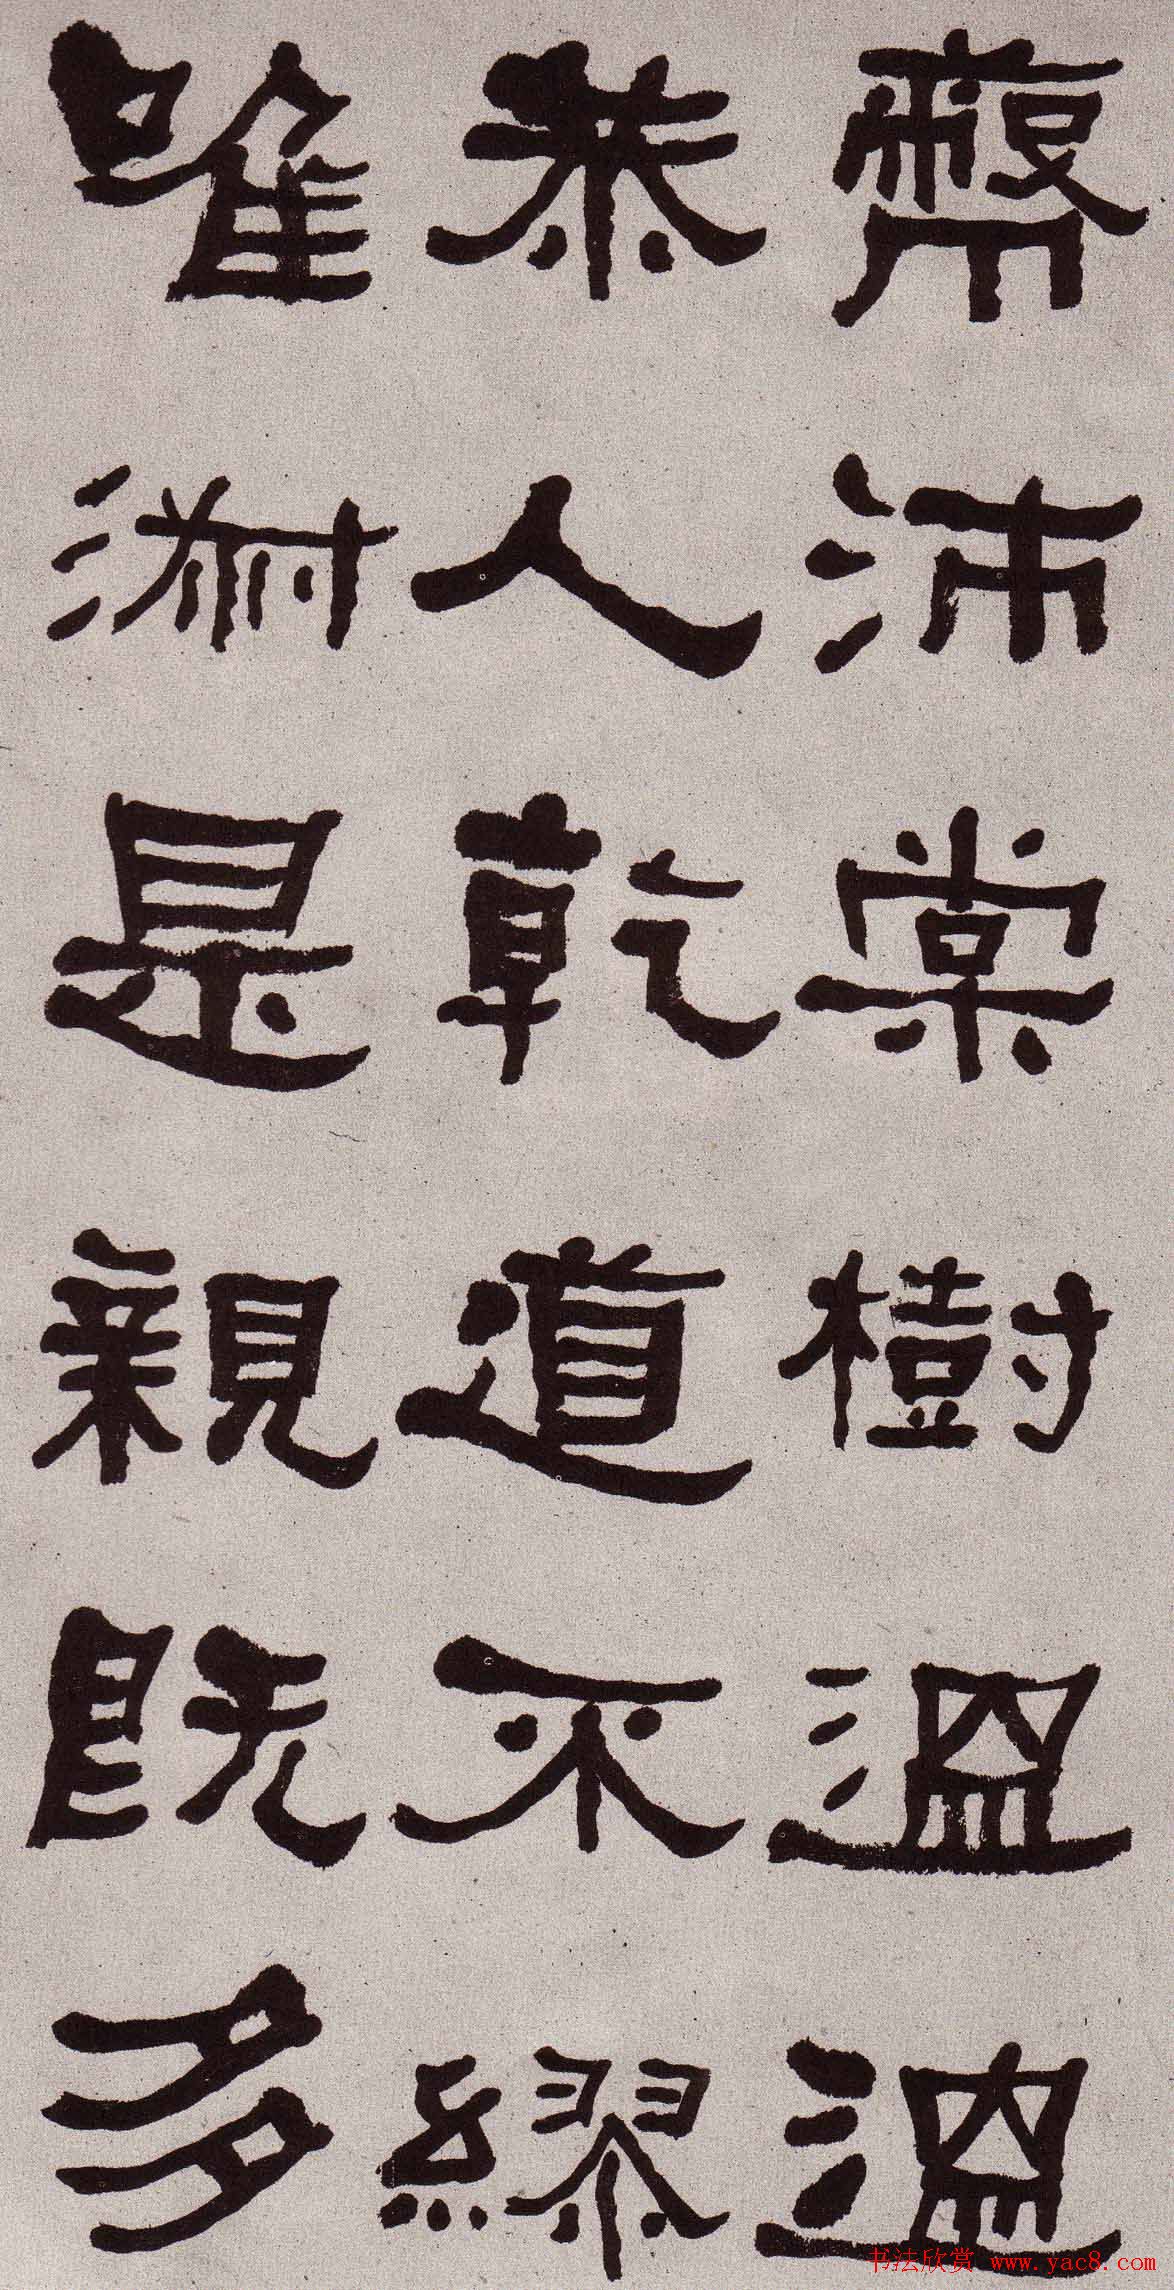 蔽沛棠樹溫溫
恭人乾道不繆
唯淑是親既多
书法欣赏 www.yac8.com